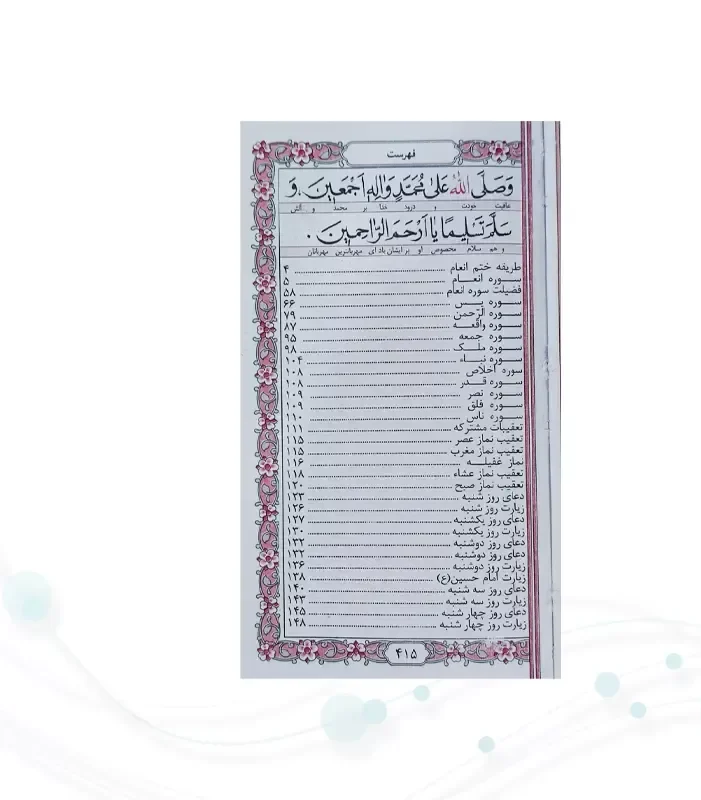 فهرست
وَصَلَّی اللّٰهُ عَلیٰ مُحَمَّدٍ وَالِهِ اَجْمَعینَ، وَ
عاقبت خودت و درود خدا بر محمد و آلش
سَلَّمَ تَسْلیمًا یا اَرْحَمَ الرّاحِمینَ .
و هم سلام مخصوص او بر ایشان باد ای مهربانترین مهربانان
طریقه ختم انعام ۴
سوره انعام ۵
فضیلت سوره انعام ۵۸
سوره یس ۶۶
سوره الرّحمن ۷۹
سوره واقعه ۸۷
سوره جمعه ۹۵
سوره ملک ۹۸
سوره نباء ۱۰۴
سوره اخلاص ۱۰۸
سوره قدر ۱۰۸
سوره نصر ۱۰۹
سوره فلق ۱۰۹
سوره ناس ۱۱۰
تعقیبات مشترکه ۱۱۱
تعقیب نماز عصر ۱۱۵
تعقیب نماز مغرب ۱۱۵
نماز غفیله ۱۱۶
تعقیب نماز عشاء ۱۱۸
تعقیب نماز صبح ۱۲۰
دعای روز شنبه ۱۲۳
زیارت روز شنبه ۱۲۶
دعای روز یکشنبه ۱۲۷
زیارت روز یکشنبه ۱۳۰
دعای روز دوشنبه ۱۳۲
دعای روز دوشنبه ۱۳۲
زیارت روز دوشنبه ۱۳۶
زیارت امام حسین(ع) ۱۳۸
دعای روز سه شنبه ۱۴۰
زیارت روز سه شنبه ۱۴۳
دعای روز چهار شنبه ۱۴۵
زیارت روز چهار شنبه ۱۴۸
۴۱۵